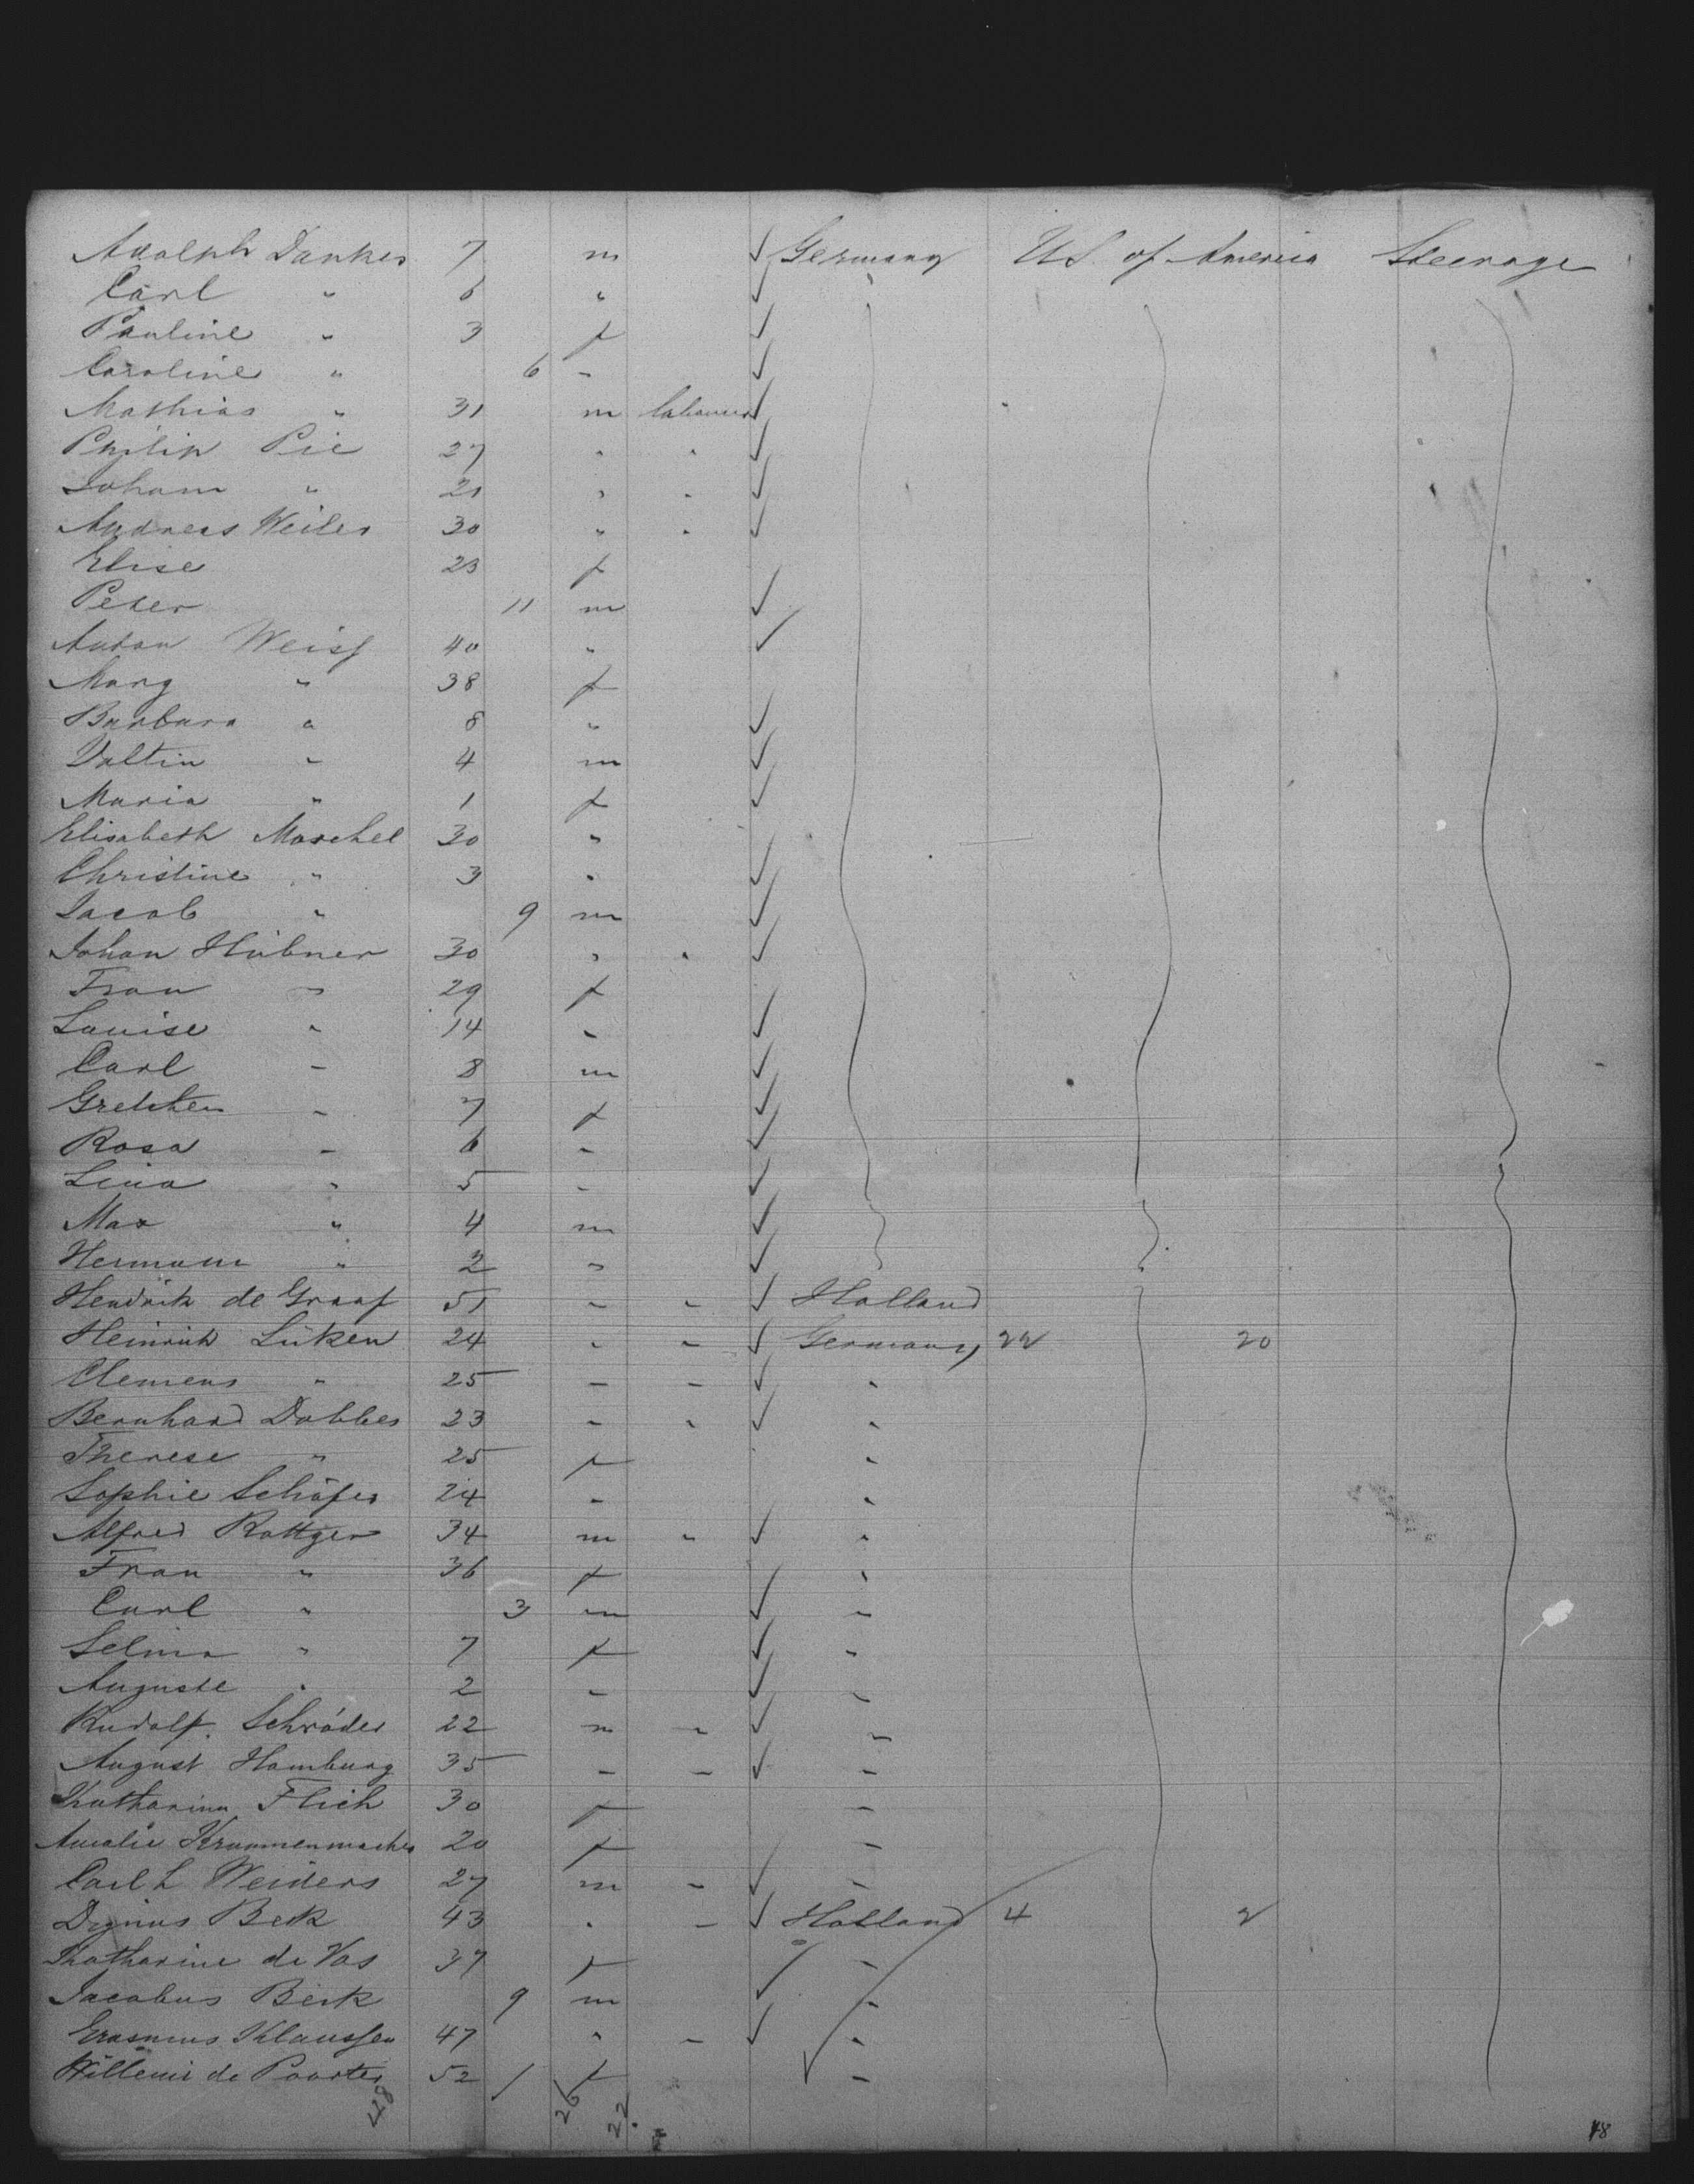 Adolph Dankes 7 m ✓ Germany US. of America Steerage
Carl " 6 " ✓ "
Pauline " 3 f ✓
Caroline " 6 - ✓
Mathias " 31 m labourer ✓
Philip Pie 27 " " ✓
Johann " 21 " " ✓
Andreas Weiler 30 " " ✓
Elise 23 f
Peter 11 m ✓
Anton Weiss 40 " ✓
Marg " 38 f
Barbara " 8 " ✓
Valtin " 4 m ✓
Maria " 1 f ✓
Elisabeth Maschel 30 "
Christine " 3 " ✓
Jacob " 9 m ✓
Johan Hübner 30 " " ✓
Frau " 29 f
Louise " 14 " ✓
Carl " 8 m ✓
Gretchen " 7 f ✓
Rosa " 6 " ✓
Lina " 5 " ✓
Max " 4 m ✓
Hermann " 2 " ✓
Hendrik de Graaf 51 " " ✓ Holland
Heinrich Lüken 24 " " ✓ Germany 22 20
Clemens " 25 " " ✓ "
Bernhard Dobbes 23 " " ✓ "
Therese " 25 f "
Sophie Schäfer 24 " "
Alfred Rottger 34 m " ✓ "
Frau " 36 f "
Carl " 3 m ✓ "
Selma " 7 f ✓ "
Auguste " 2 " ✓ "
Rudolf Schröder 22 m " ✓ "
August Hamburg 35 " " ✓ "
Katharina Flich 30 f "
Amalie Krummenmacher 20 f "
Carl L Weiders 27 m " ✓ "
Dignus Beck 43 " " ✓ Holland 4 2
Katharine de Vos 37 f "
Jacobus Beck 9 m ✓ "
Erasmus Klaussen 47 " " ✓ "
Willemi de Poorter 52 / f ✓ "
48 26 22
48